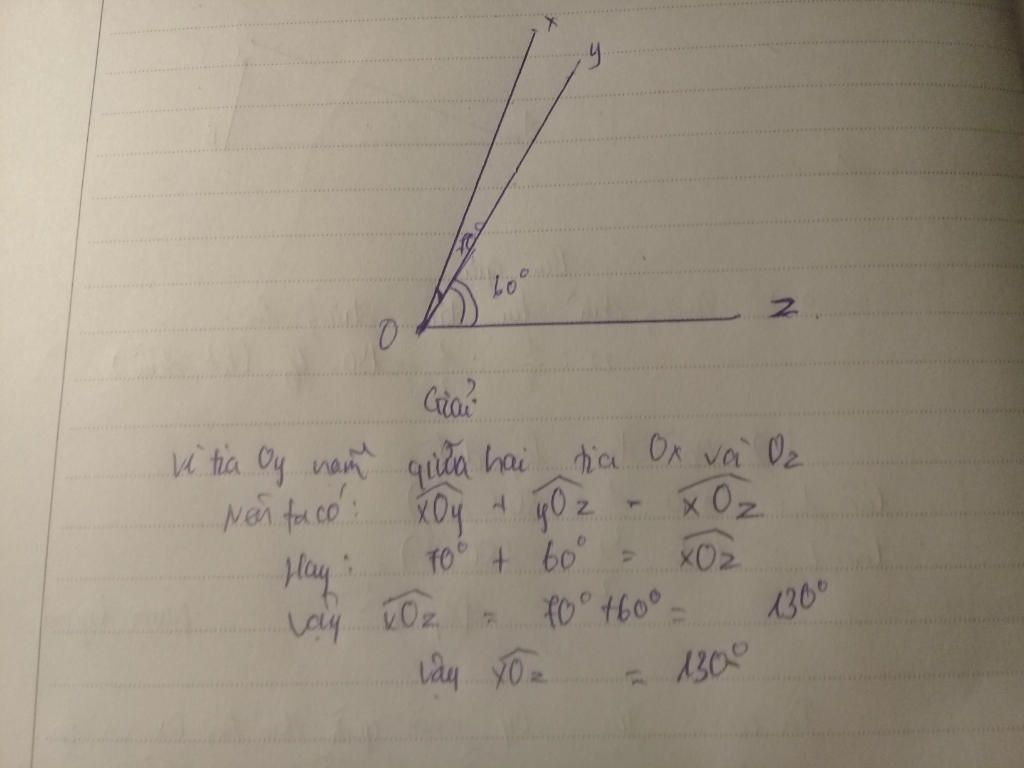 x
y
70°
60°
O
z
Giải:
Vì tia Oy nằm giữa hai tia Ox và Oz
Nên ta có: xOy + yOz = xOz
Hay: 70° + 60° = xOz
Vậy xOz = 70° + 60° = 130°
Vậy xOz = 130°